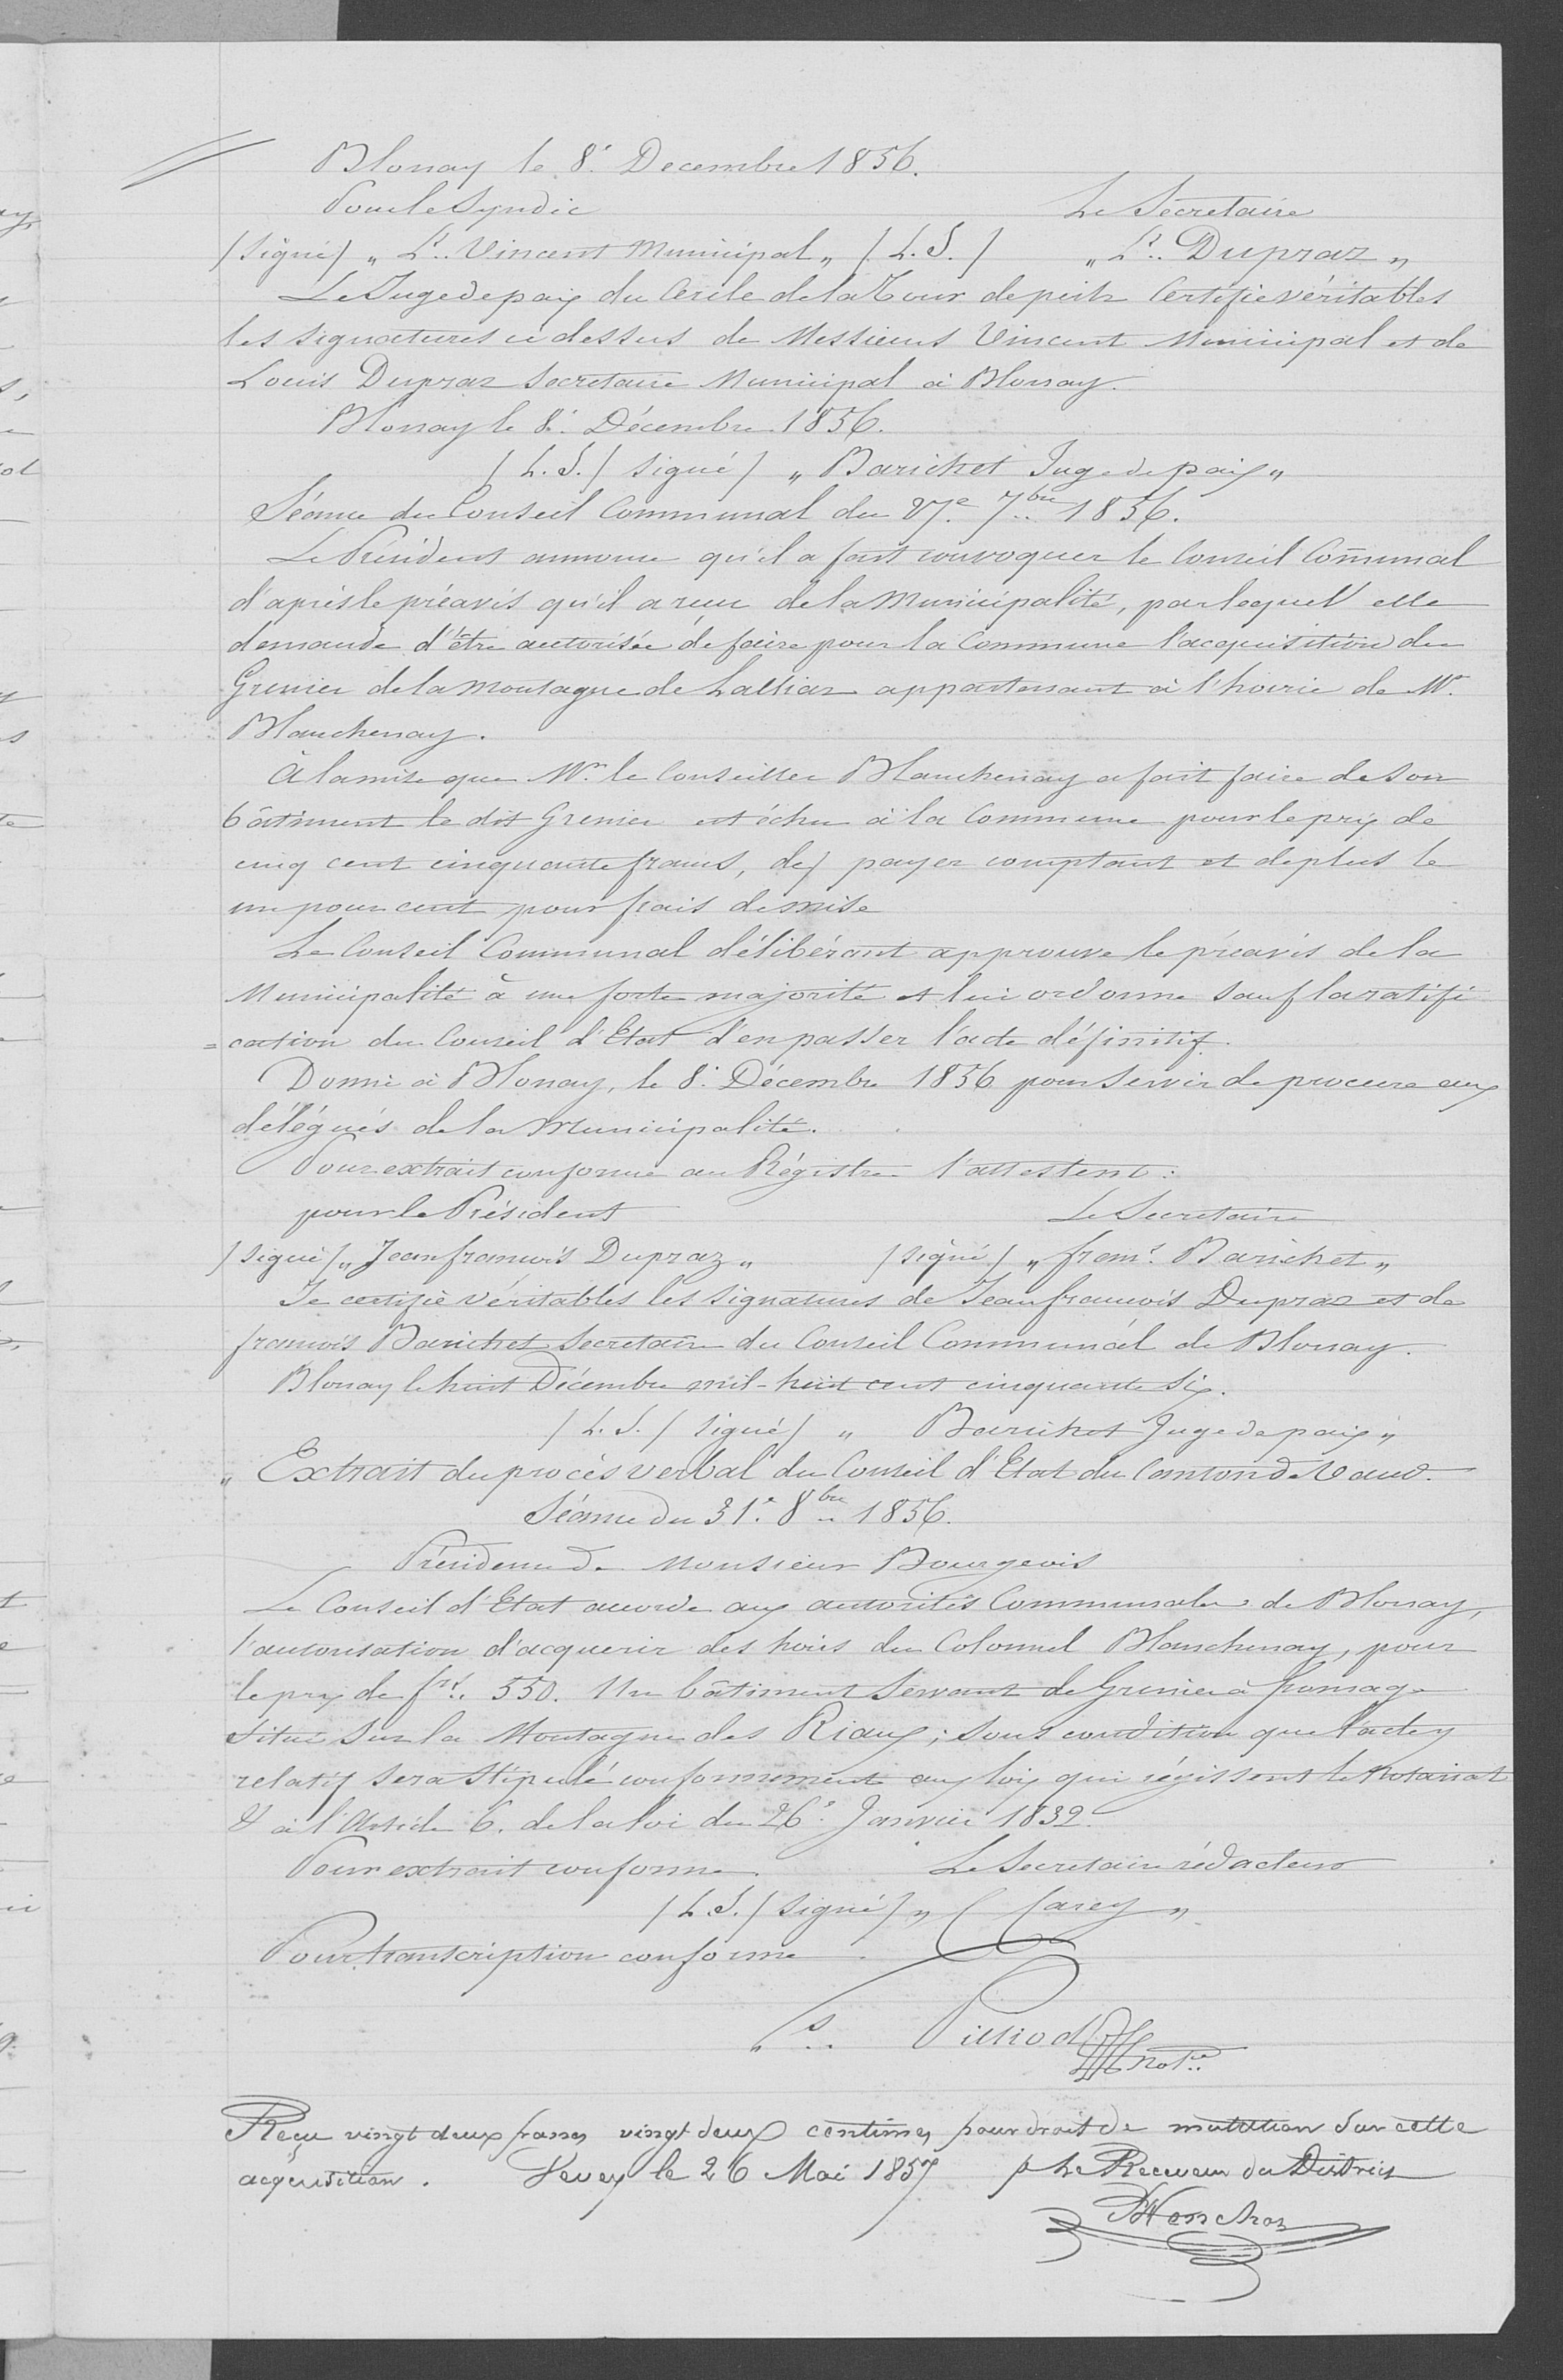 Blonay le 8.e Decembre 1856.
Pour le Syndic Le Sécretaire
/signé/ „ Ls. Vincent Municipal „ /L.S./ „ Ls. Dupraz „
Le Juge de paix du Cercle de la Tour de peilz Certifie véritables
les signatures ci dessus de Messieurs Vincent Municipal et de
Louis Dupraz Secretaire Municipal à Blonay.
Blonay le 8.e Décembre 1856.
/L.S./ signé/ „ Barichet Juge de paix „
Séance du Conseil Communal du 27.e 7bre 1856.
Le Président annonce qu'il a fait convoquer le Conseil Com̄unal
d'après le préavis qu'il a reçu de la Municipalité, par lequel elle
demande d'être autorisée de faire pour la Commune l'acquisition du
Grenier de la montagne de Lalliaz appartenant à l'hoirie de Mr.
Blanchenay.
À la mise que Mr. le Conseiller Blanchenay a fait faire de son
bâtiment le dit Grenier est échu à la Commune pour le prix de
cinq cent cinquante francs, de payer comptant et de plus le
un pour cent pour frais de mise
Le Conseil Communal délibérant approuve le préavis de la
Municipalité à une forte majorité et lui ordonne sauf la ratifi
= cation du Conseil d'Etat d'en passer l'acte définitif.
Donné à Blonay, le 8.e Décembre 1856 pour servir de procure aux
délégués de la Municipalité.
Pour extrait conforme au Régistre l'attestent:
pour le Président Le Secretaire
/signé/ „ Jean francois Dupraz „ /signé/ „ frans. Barichet „
Je certifie véritables les signatures de Jean francois Dupraz et de
francois Barichet Secretaire du Conseil Communal de Blonay.
Blonay le huit Décembre mil-huit cent cinquante six.
/L.S./ signé/ „ Barichet Juge de paix „
„ Extrait du procès verbal du Conseil d'Etat du Canton de Vaud.
Séance du 31.e 8bre 1856.
Présidence de Monsieur Bourgeois
Le Conseil d'Etat accorde aux autorités Communales de Blonay,
l'autorisation d'acquerir des hoirs du Colonnel Blanchenay, pour
le prix de frs. 550. Un bâtiment servant de Grenier à fromage
situé sur la Montagne des Riaux; sous condition que l'acte y
relatif sera stipulé conformément aux lois qui régissent le Notariat
& à l'Article 6. de la loi du 26.e Janvier 1832.
Pour extrait conforme. Le Secretaire rédacteur
/L.S./ signé/ „ C Carey „
Pour transcription conforme
Ls. Pilliod notre
Reçu vingt deux francs vingt deux centimes pour droit de mutation sur cette
acquisition. Vevey le 26 Mai 1857 p Le Receveur du District